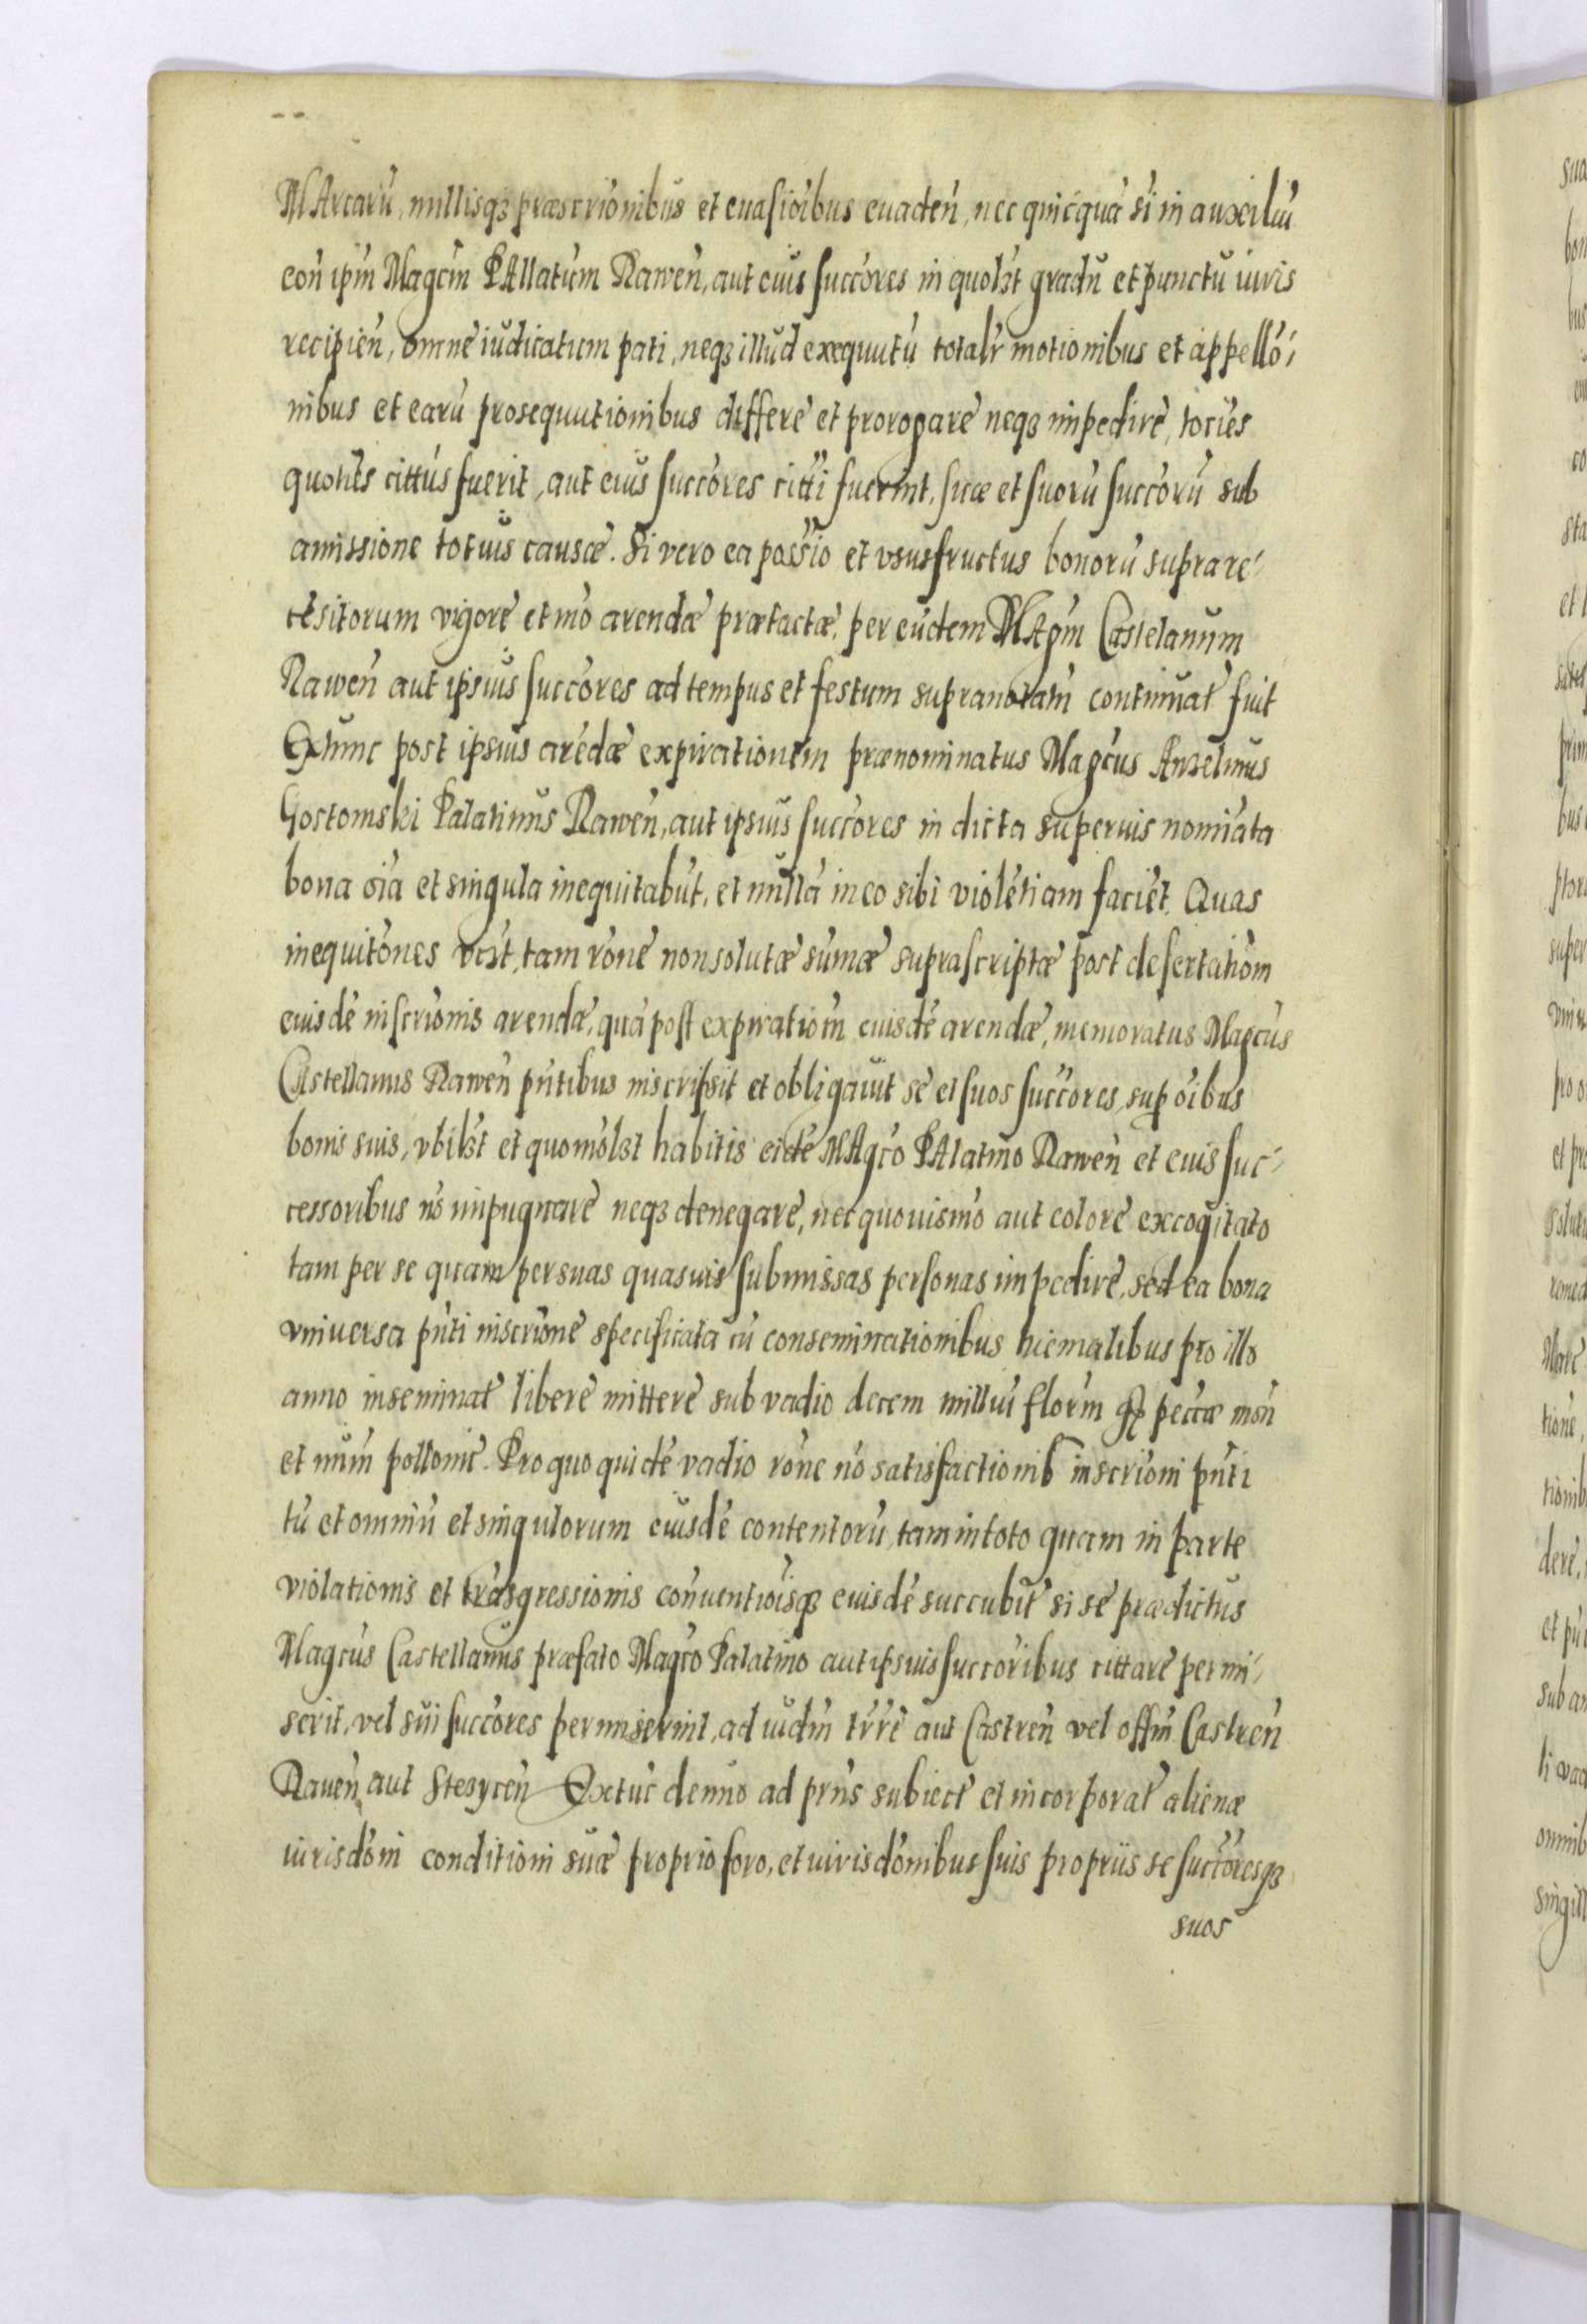 MArcarũ, nullisqȝ præscriõnibus et euasiõibus euadeñ, nec quicquã si in auxiliũ
coñ ipm̃ Magcm̃ PAllatum̃ Raweñ, aut eius succões in quolȝt gradu et punctu iuris
recipieñ, omne iudicatum pati, neqȝ illud exequutũ totalr̃ motionibus et appellõ-
nibus et earũ prosequutionibus differe et prorogare neqȝ impedire, tocies
quoties cittus fuerit, aut eius succõres citti fuerint, suæ et suorũ succorũ sub
amissione totius causæ. Si vero ea possio et vsusfructus bonorũ suprare-
cẽsitorum vigore et mõ arendæ prætactæ, per eũdem MAgm̃ Castelanum
Raweñ aut ipsius succõres ad tempus et festum supranotatm̃ continuat̃ fuit
Extunc post ipsius arẽdæ expirationem prænominatus Magcus Anzelmus
Gostomski Palatinus Raweñ, aut ipsius succõres in dicta superius nomiãta
bona oĩa et singula inequitabũt, et nullã in eo sibi violẽtiam faciẽt. Quas
inequitõnes vcȝt, tam rõne non solutæ sũmæ suprascriptæ post desertatiõm
eiusdẽ inscriõnis arendæ, quã post expiratiom̃ eiusdẽ arendæ, memoratus Magcus
CAstellanus Raweñ pñtibus inscripsit et obligauit se et suos succõres, sup oĩbus
bonis suis, vbilȝt et quomõlȝt habitis eidẽ MAgcõ PAlatino Raweñ et eius suc-
cessoribus nõ impugnare neqȝ denegare, nec quouismõ aut colore excogitato
tam per se quam per suas quasuis submissas personas impedire, sed ea bona
vniuersa pñti inscriõne specificata cũ conseminationibus hiemalibus pro illo
anno inseminat̃ libere mittere sub vadio decem milliũ florm̃ pectæ moñ
et num̃ pollonic̃. Pro quo quidẽ vadio rõne nõ satisfactionis inscriõni pñti
tũ et omniũ et singulorum eiusdẽ contentorũ, tam in toto quam in parte
violationis et trãsgressionis conuentiõisqȝ eiusdẽ succubit̃ si se prædictus
Magcus Castellanus præfato Magcõ Palatino aut ipsius succõribus cittare permi-
serit, vel sui succõres permiserint, ad iudm̃ trr̃e aut Castreñ vel offm̃ Castreñ
Raueñ, aut Stezyceñ Extũc denuo ad prñs subiect̃ et incorporat̃ alienæ
iurisdõni conditioni suæ proprio foro, et iurisdõnibus suis propriis se succõresqȝ
suos